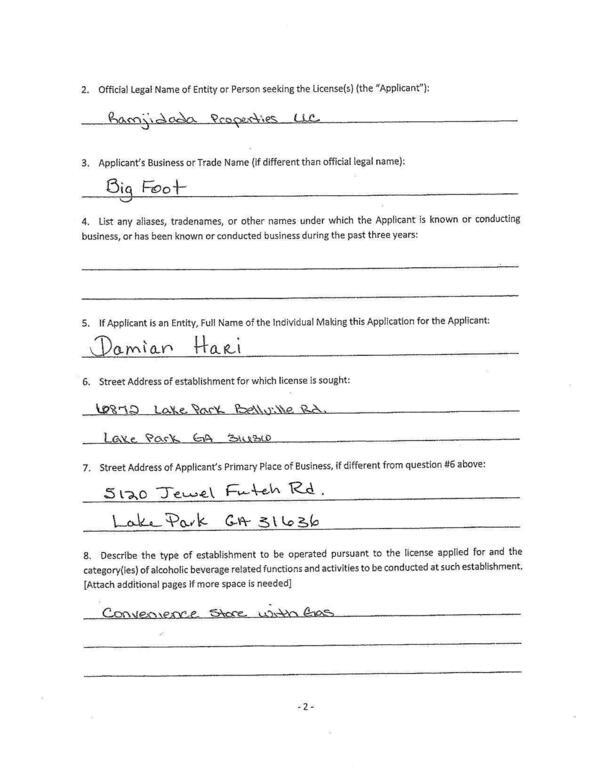 2. Official Legal Name of Entity or Person seeking the License(s) (the "Applicant"):
Ramjidada Properties LLC
3. Applicant's Business or Trade Name (if different than official legal name):
Big Foot
4. List any aliases, tradenames, or other names under which the Applicant is known or conducting
business, or has been known or conducted business during the past three years:
5. If Applicant is an Entity, Full Name of the Individual Making this Application for the Applicant:
Damian Hari
6. Street Address of establishment for which license is sought:
6872 Lake Park Bellville Rd.
Lake Park GA 31636
7. Street Address of Applicant's Primary Place of Business, if different from question #6 above:
5120 Jewel Futch Rd.
Lake Park GA 31636
8. Describe the type of establishment to be operated pursuant to the license applied for and the
category(ies) of alcoholic beverage related functions and activities to be conducted at such establishment.
[Attach additional pages if more space is needed]
Convenience Store with Gas
- 2 -